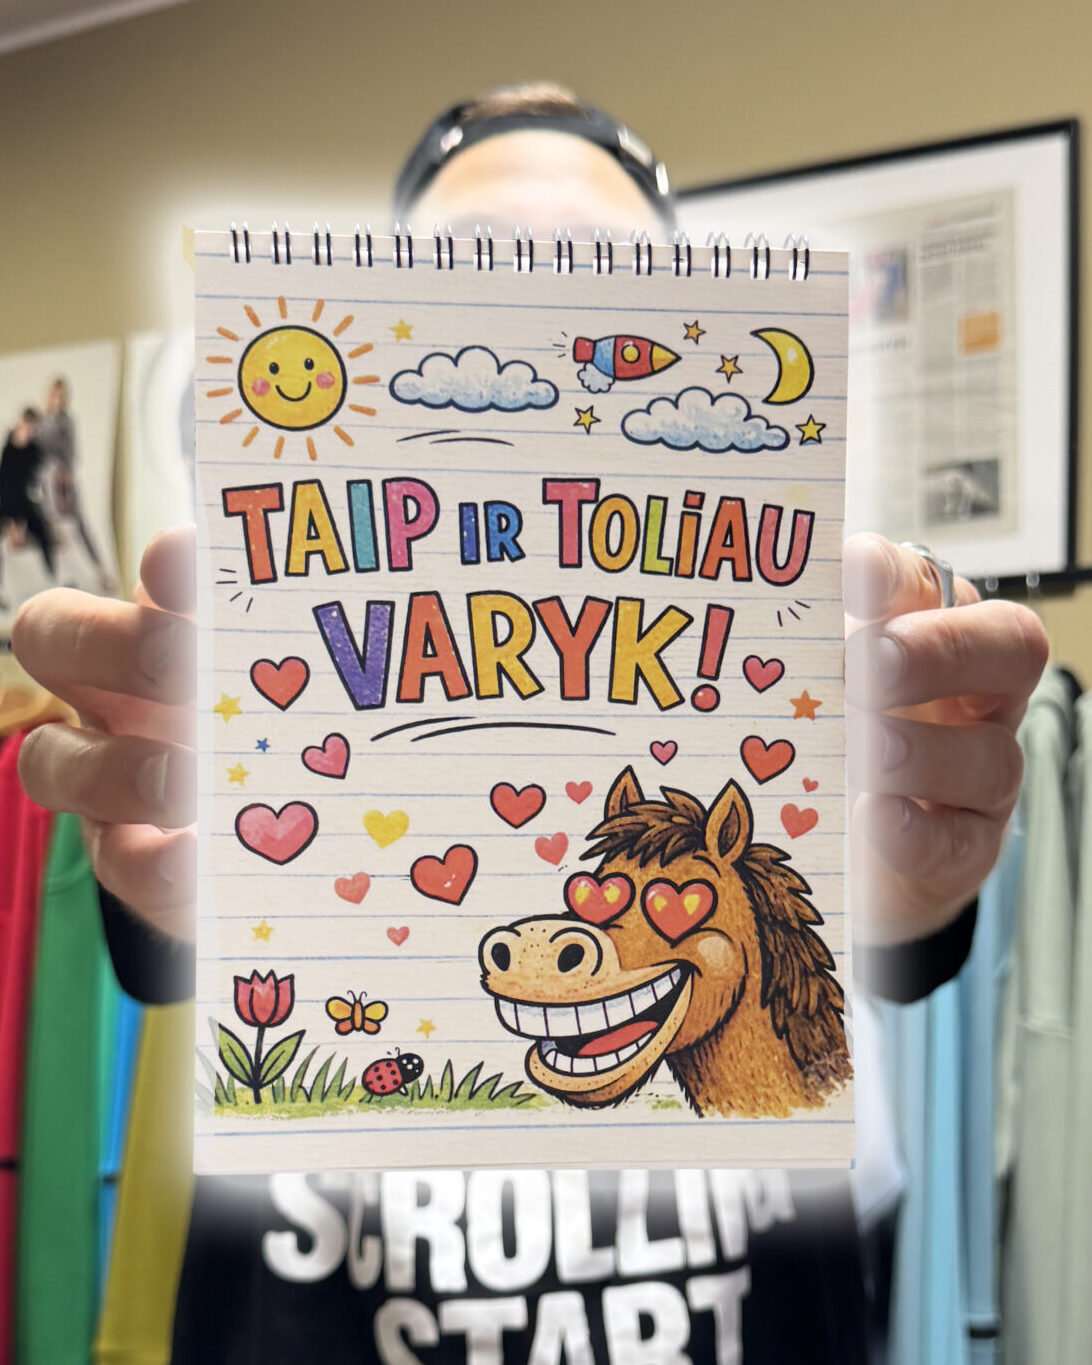 TAIP IR TOLiAU
VARYK!
SCROLLING
START